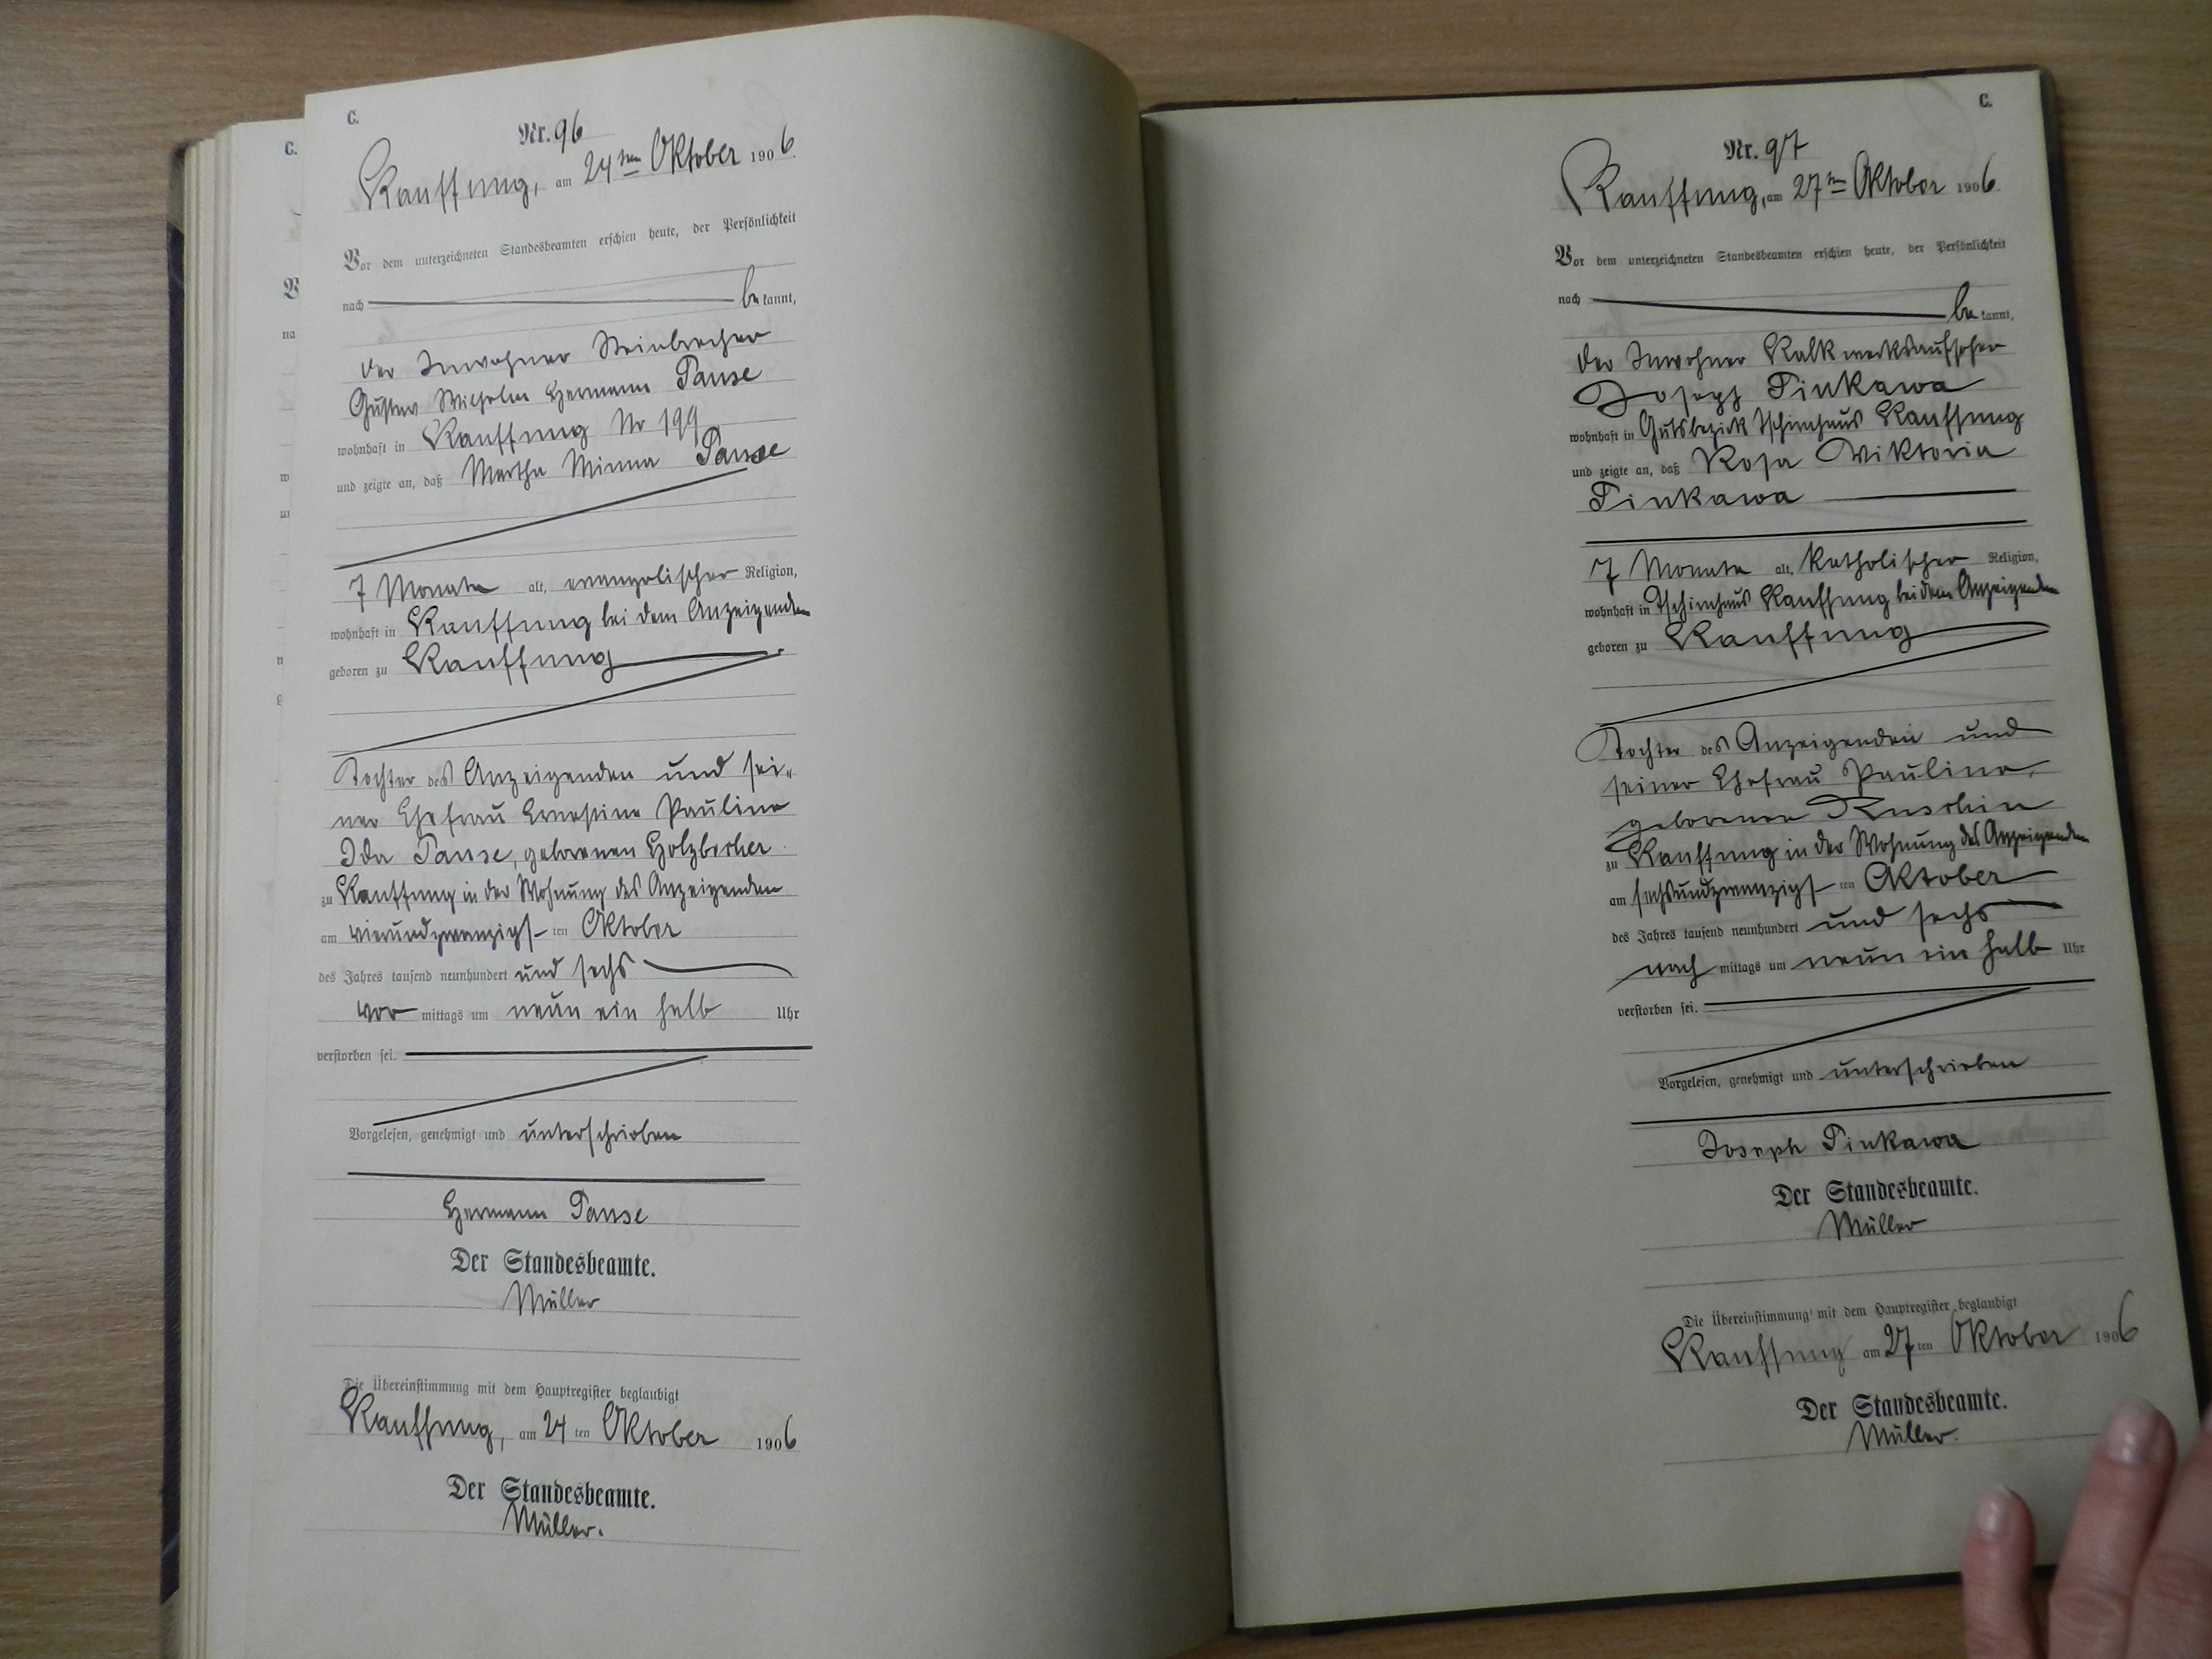 C.
Nr. 96
Kauffung, am 24ten Oktober 1906.
Vor dem unterzeichneten Standesbeamten erschien heute, der Persönlichkeit
nach be kannt,
der Inwohner Steinbrecher
Gustav Wilhelm Hermann Pause
wohnhaft in Kauffung No 199
und zeigte an, daß Martha Minna Pause
7 Monate alt, evangelischer Religion,
wohnhaft in Kauffung bei dem Anzeigenden
geboren zu Kauffung
Tochter des Anzeigenden und sei-
ner Ehefrau Ernestine Pauline
Ida Pause, geborenen Holzbecher
zu Kauffung in der Wohnung des Anzeigenden
am vierundzwanzigsten Oktober
des Jahres tausend neunhundert und sechs
vor mittags um neun ein halb Uhr
verstorben sei.
Vorgelesen, genehmigt und unterschrieben
Hermann Pause
Der Standesbeamte.
Müller
Die Übereinstimmung mit dem Hauptregister beglaubigt
Kauffung, am 24 ten Oktober 1906
Der Standesbeamte.
Müller.
C.
Nr. 97
Kauffung, am 27ten Oktober 1906.
Vor dem unterzeichneten Standesbeamten erschien heute, der Persönlichkeit
nach be kannt,
der Inwohner Kalkwerksaufseher
Joseph Tinkawa
wohnhaft in Gutsbezirk Tschirnhaus Kauffung
und zeigte an, daß Rosa Wiktoria
Tinkawa
7 Monate alt, katholischer Religion,
wohnhaft in Tschirnhaus Kauffung bei dem Anzeigenden
geboren zu Kauffung
Tochter des Anzeigenden und
seiner Ehefrau Pauline,
geborenen
zu Kauffung in der Wohnung des Anzeigenden
am sechsundzwanzigsten Oktober
des Jahres tausend neunhundert und sechs
nach mittags um neun ein halb Uhr
verstorben sei.
Vorgelesen, genehmigt und unterschrieben
Joseph Tinkawa
Der Standesbeamte.
Müller
Die Übereinstimmung mit dem Hauptregister beglaubigt
Kauffung am 27 ten Oktober 1906
Der Standesbeamte.
Müller.